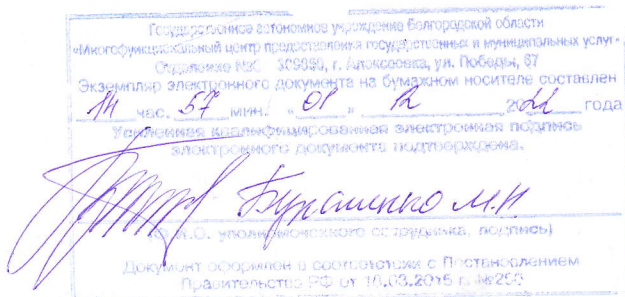 Государственное автономное учреждение Белгородской области
«Многофункциональный центр предоставления государственных и муниципальных услуг»
Отделение № 309850, г. Алексеевка, ул. Победы, 67
Экземпляр электронного документа на бумажном носителе составлен
14 час. 57 мин. «01» 12 2022 года
Усиленная квалифицированная электронная подпись
электронного документа подтверждена.
М.Н
(Ф.И.О. уполномоченного сотрудника, подпись)
Документ оформлен в соответствии с Постановлением
Правительства РФ от 18.03.2015 г. №250